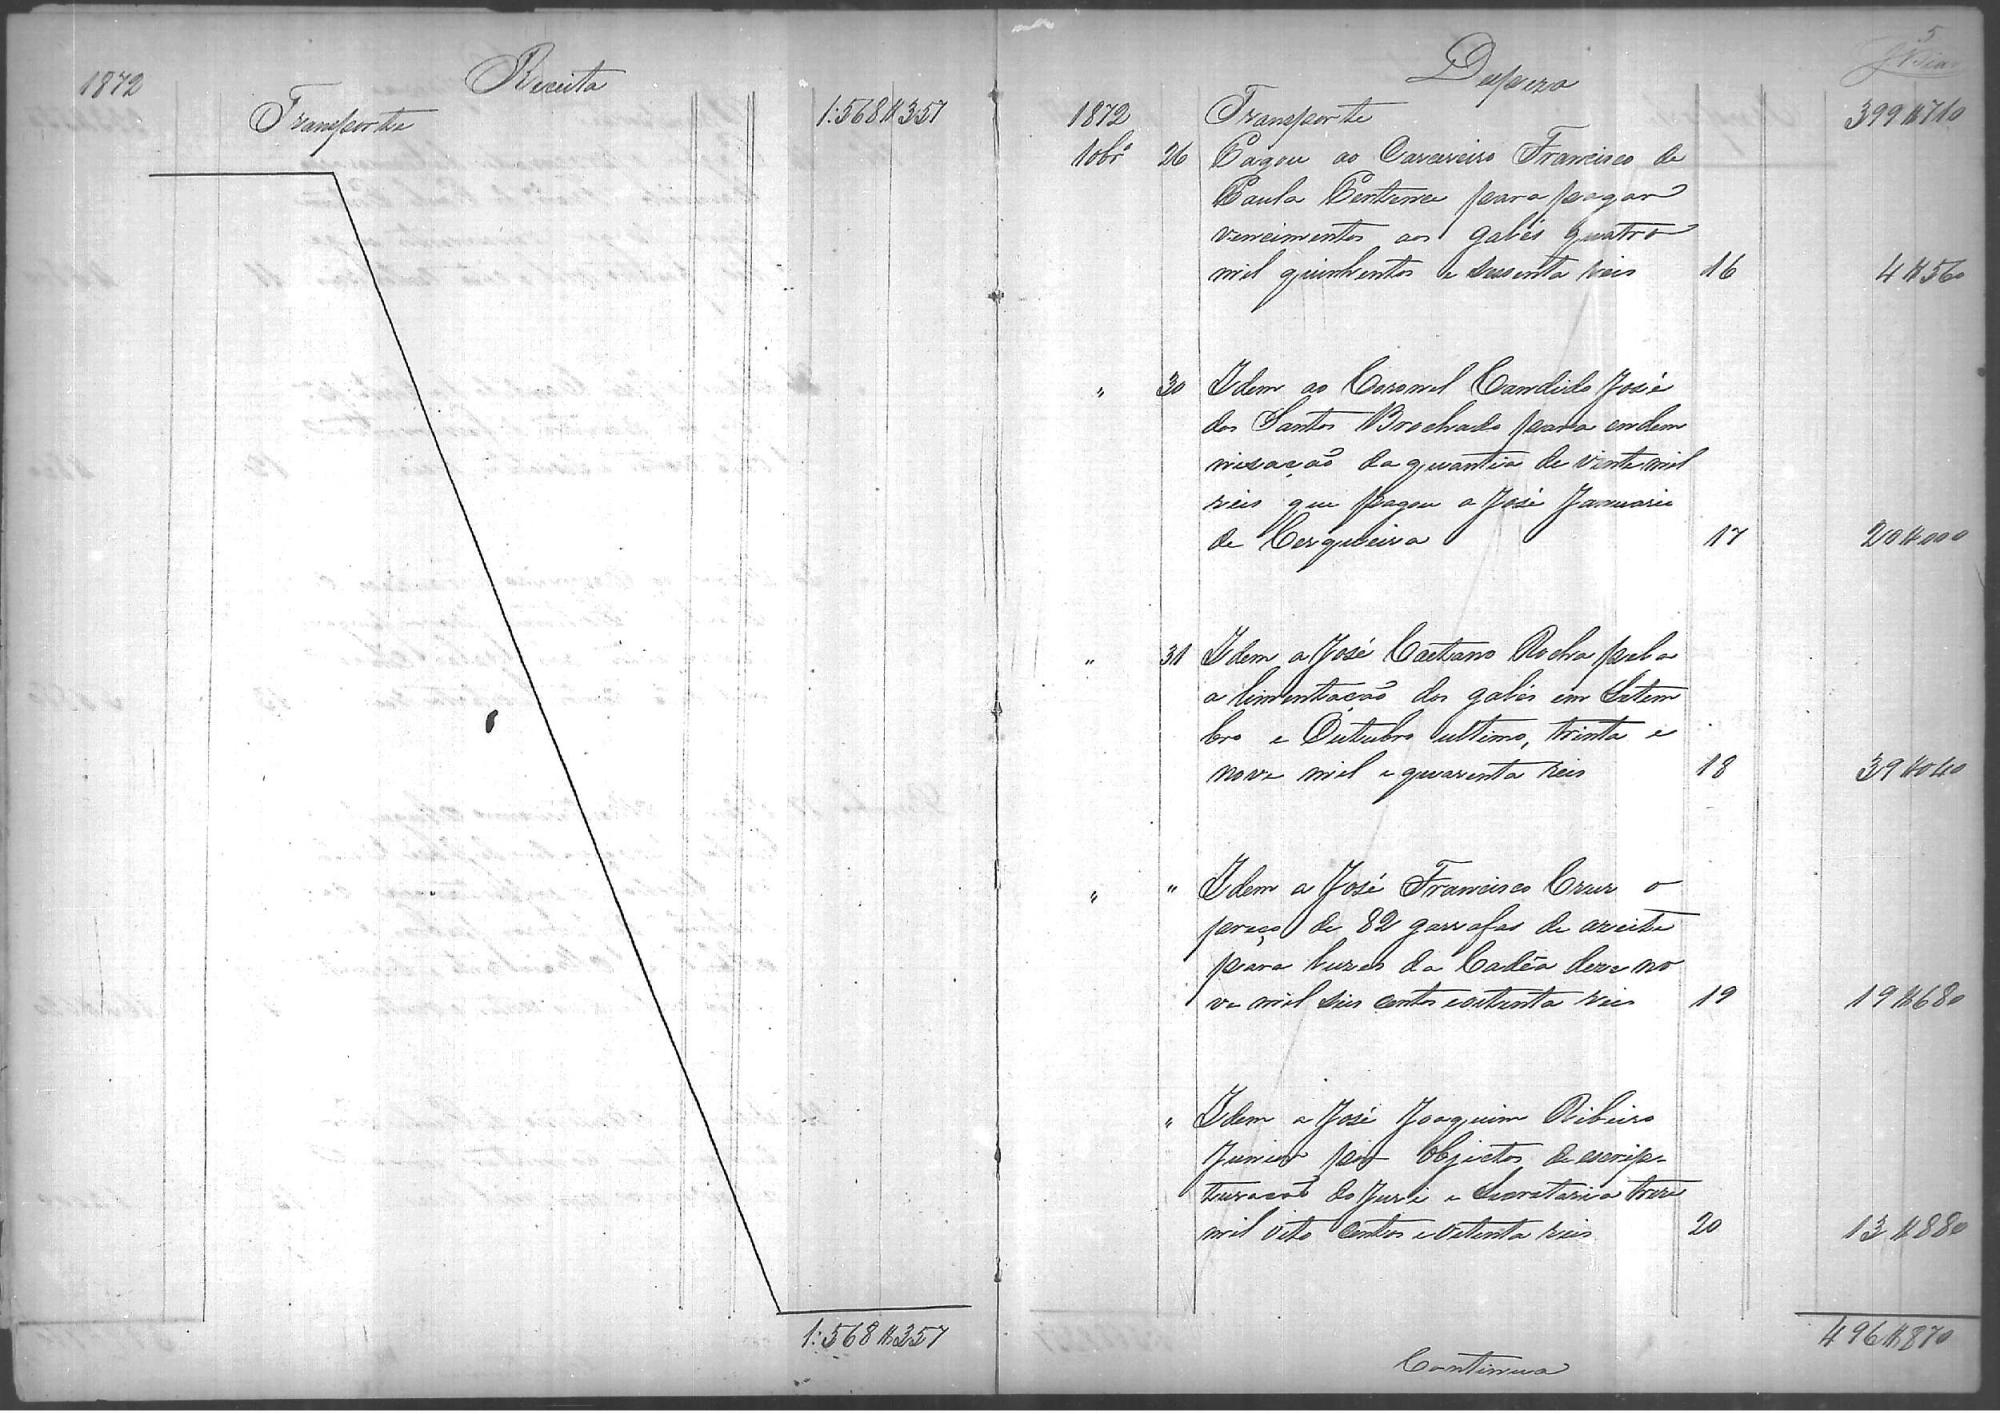 1872
Receita
Transporte 1:568$357
1:568$357
5
Despeza
1872 Transporte 399$710
10brº 26 Pagou ao Carcereiro Francisco de
Paula Pertence para pagar
vencimentos aos galés quatro
mil quinhentos e sessenta reis 16 4$560
" 30 Idem ao Coronel Candido José
dos Santos Brochado para endem
nisação da quantia de vinte mil
reis que pagou a José Januario
de Cerqueira 17 20$000
" 31 Idem a José Caetano Rocha pela
alimentação dos galés em Setem
bro e Outubro ultimo, trinta e
nove mil e quarenta reis 18 39$040
" " Idem a José Francisco Cruz o
preço de 82 garrafas de azeite
para luzes da Cadêa deze no
ve mil seis centos e oitenta reis 19 19$680
" Idem a José Joaquim Ribeiro
Junior por objectos de escrip-
turação do Jury e Secretaria treze
mil oito centos e oitenta reis 20 13$880
496$870
Continua